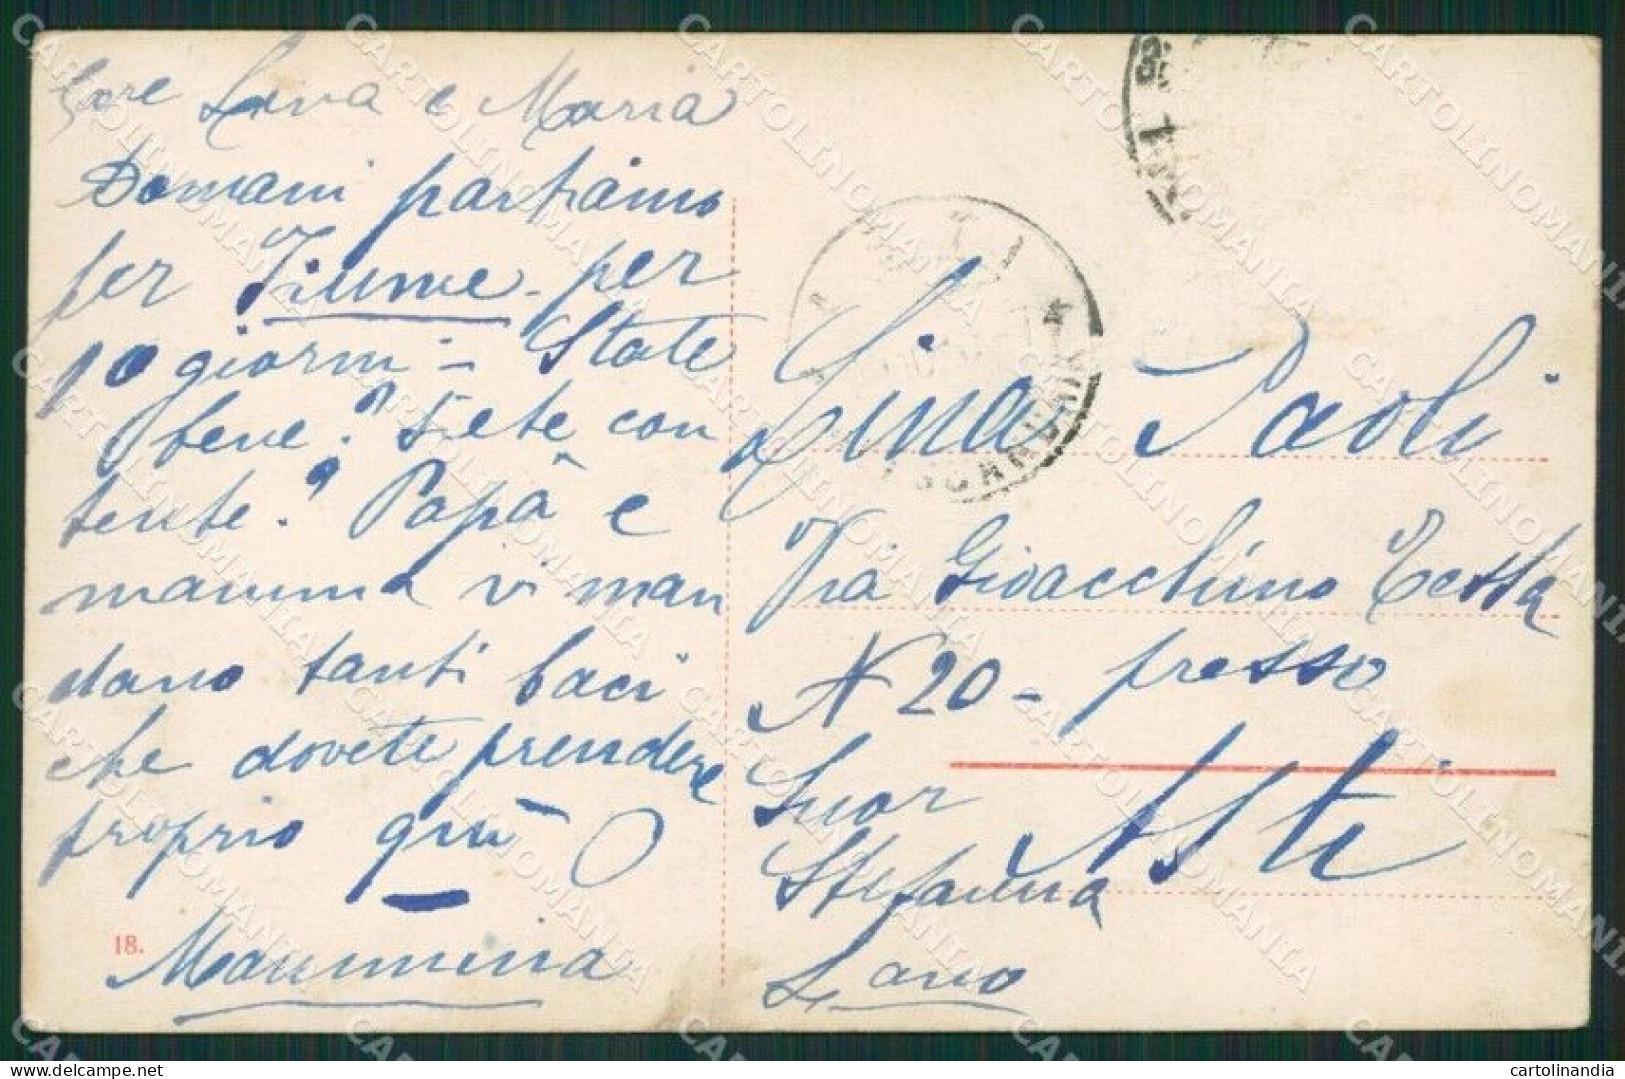 Care Lina e Maria
Domani partiamo
per Fiume - per
10 giorni - State
bene? Siete con
tente? Papà e
mamma vi man
dano tanti baci
che dovete prendere
proprio quì O
Mammina
18.
Lina Paoli
Via Gioacchino Testa
N 20 - presso
Suor
Stefanina
Asti
cartolinandia
CARTOLINOMANIA